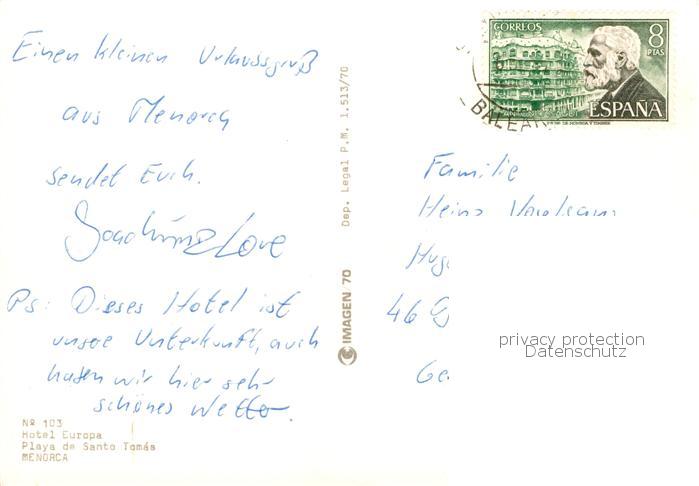 Einen kleinen Urlaubsgruß
aus Menorca
sendet Euch.
Ps: Dieses Hotel ist
unsere Unterkunft, auch
haben wir hier sehr
schönes Wetter.
Nº 103
Hotel Europa
Playa de Santo Tomás
MENORCA
Dep. Legal P.M. 1.513/70
IMAGEN 70
CORREOS
8
PTAS
ESPAÑA
BALEAR
Familie
Heinz
46
privacy protection
Datenschutz